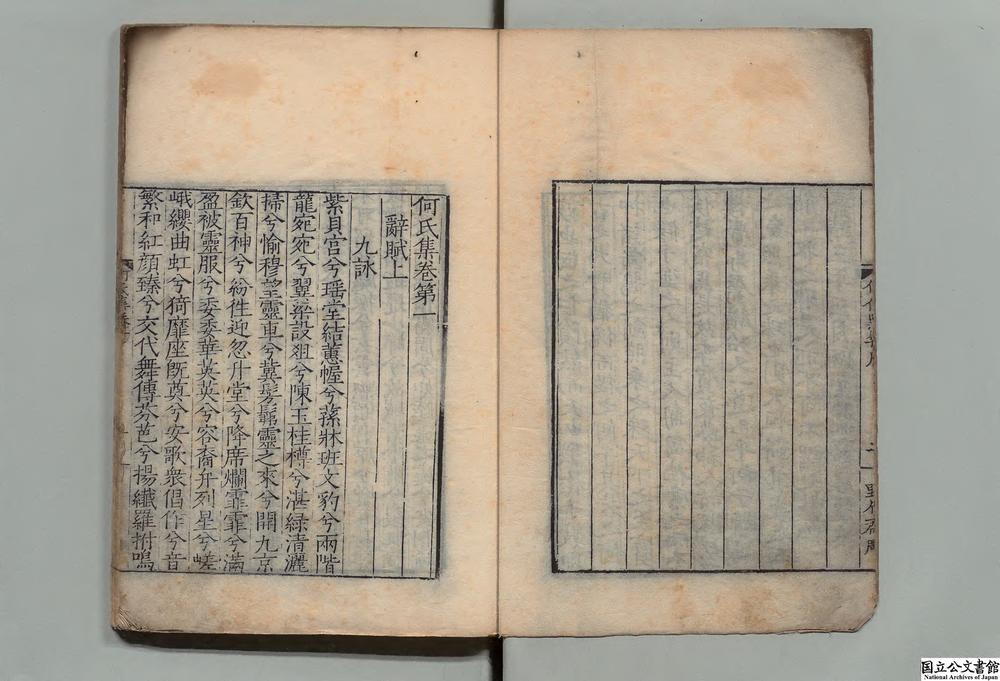 何氏集卷第一
辭賦上
九詠
紫貝宮兮瑶堂結蕙幄兮蓀牀班文豹兮兩階
龍宛宛兮翼梁設俎兮陳玉桂樽兮湛綠清灑
掃兮愉穆望靈車兮冀髣髴靈之來兮開九京
欽百神兮紛徃迎忽升堂兮降席爛霏霏兮滿
盈被靈服兮委委華英英兮容裔弁列星兮嵯
峨纓曲虹兮猗靡座旣奠兮安歌衆倡作兮音
繁和紅顔臻兮交代舞傳芬芭兮揚纖羅拊鳴
野竹齋
国立公文書館
National Archives of Japan